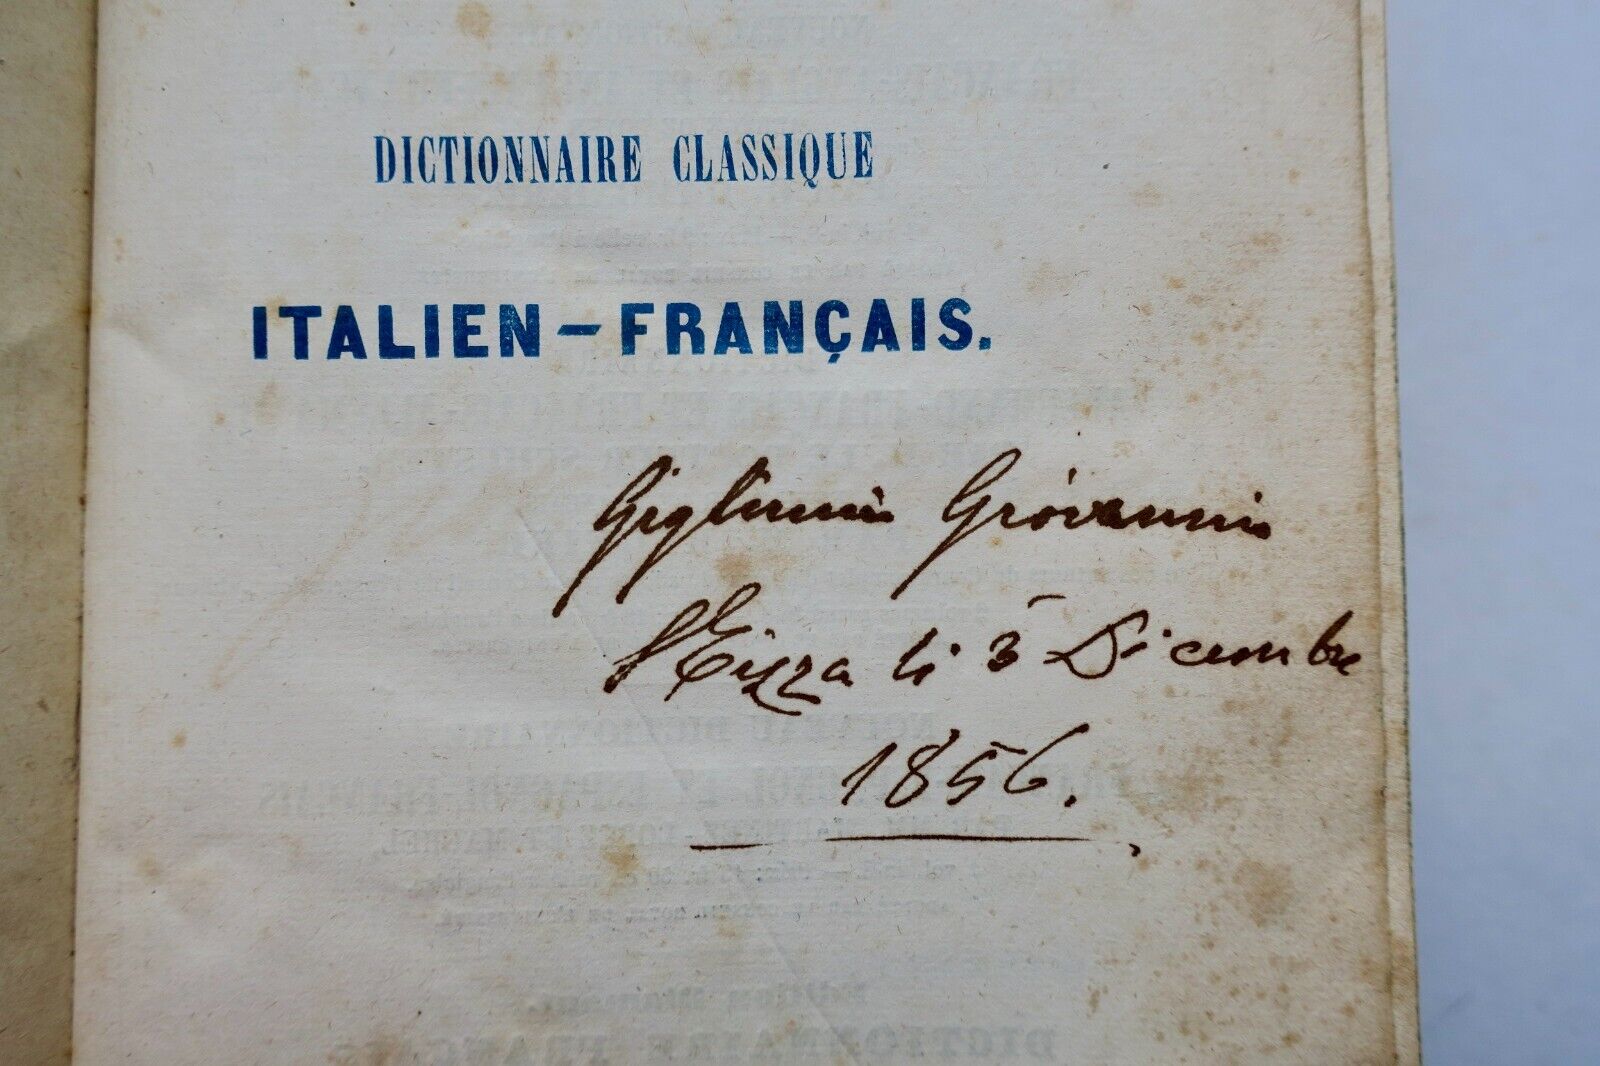 DICTIONNAIRE CLASSIQUE
ITALIEN – FRANÇAIS.
Giovanni
Nizza li 3 Dicembre
1856.